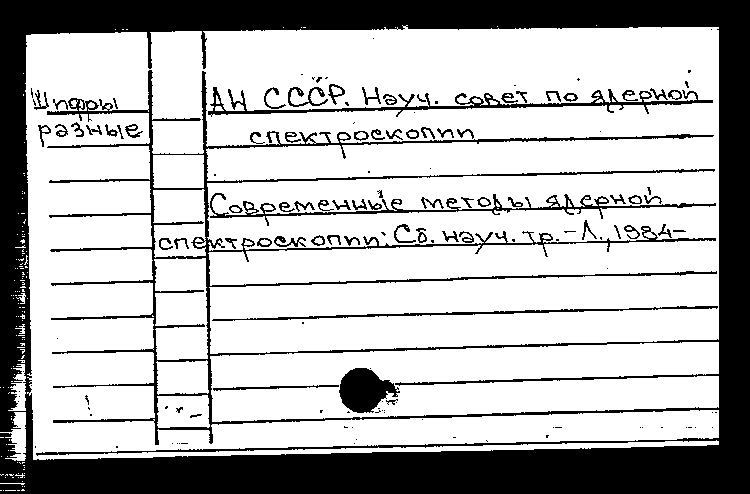 Шифры
разные
АН СССР. Науч. совет по ядерной
спектроскопии
Современные методы ядерной
спектроскопии: Сб. науч. тр. - Л., 1984-